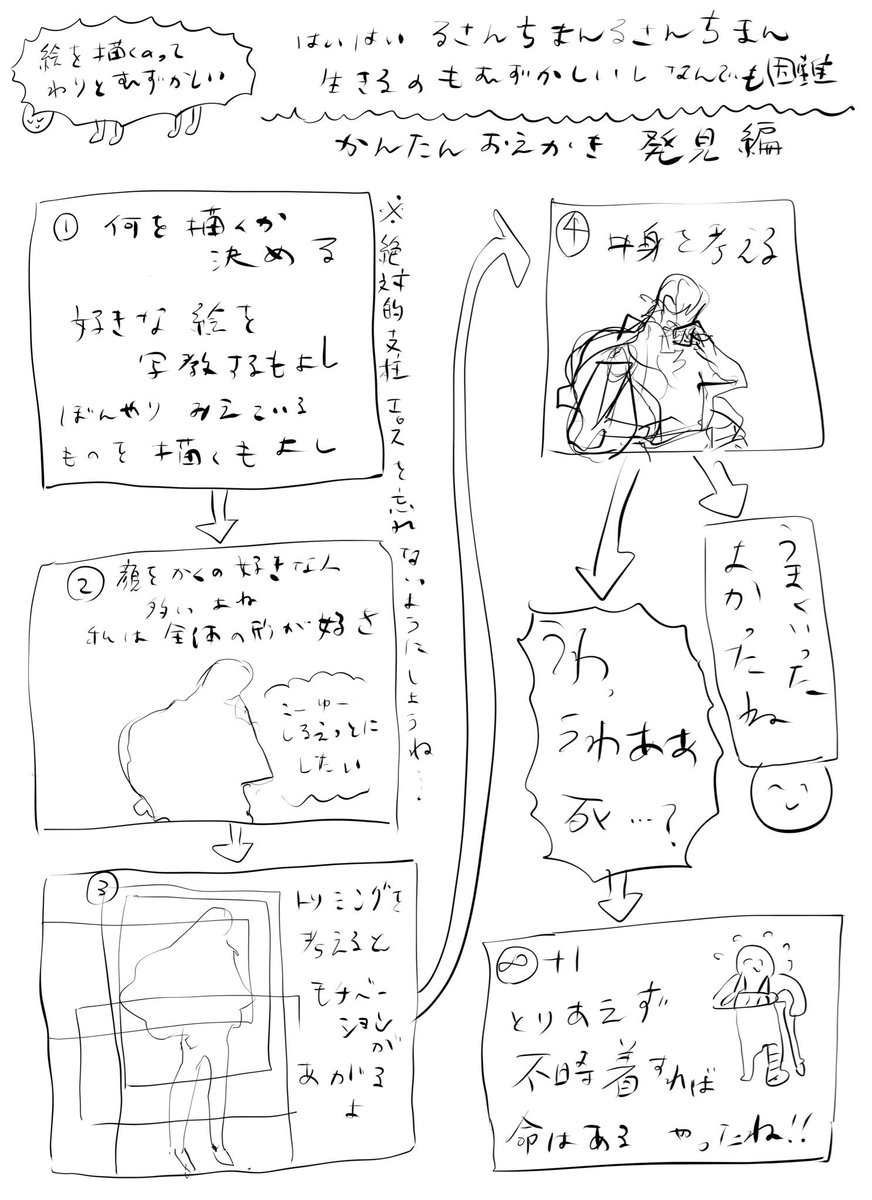 絵を描くのって
わりとむずかしい
はいはい るさんちまんるさんちまん
生きるのもむずかしいし なんでも困難
かんたんおえかき 発見編
① 何を描くか
決める
好きな絵を
写教するもよし
ぼんやり みえている
ものを描くもよし
※絶対的支柱 エロスを忘れないようにしようね…
② 顔をかくの好きな人
多いよね
私は全体の形が好き
こーゆー
しるえっとに
したい
③
トリミングを
考えると
モチベー
ションが
あがる
よ
④ 中身を考える
うまくいった
よかったね
うわっ
うわああ
死…?
∞+1
とりあえず
不時着すれば
命はある やったね!!